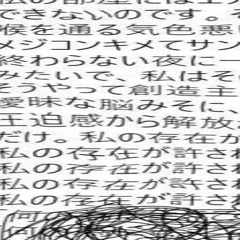 私の部屋には王
できないのです。
喉を通る気色悪い
メジコンキメてサン
終わらない夜に一
みたいで、私はそ
そうやって創造主
曖昧な脳みそに、
圧迫感から解放
だけ。私の存在が
私の存在が許され
私の存在が許さ
私の存在が許さ
私の存在が許さ